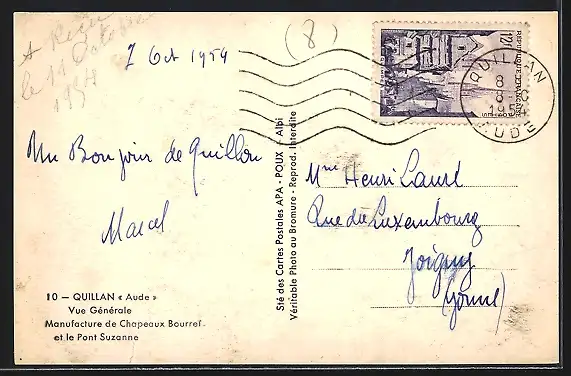 Reçu
le 11 Octobre
1954
7 Oct 1954
(8)
REPUBLIQUE FRANÇAISE
12F
POSTES
QUILLAN
8
8
195
AUDE
Un Bonjour de Quillan
Marcel
Mme Henri Laure
Rue du Luxembourg
Joigny
(Yonne)
Sté des Cartes Postales APA - POUX - Albi
Véritable Photo au Bromure - Reprod. Interdite
10 — QUILLAN « Aude »
Vue Générale
Manufacture de Chapeaux Bourref.
et le Pont Suzanne